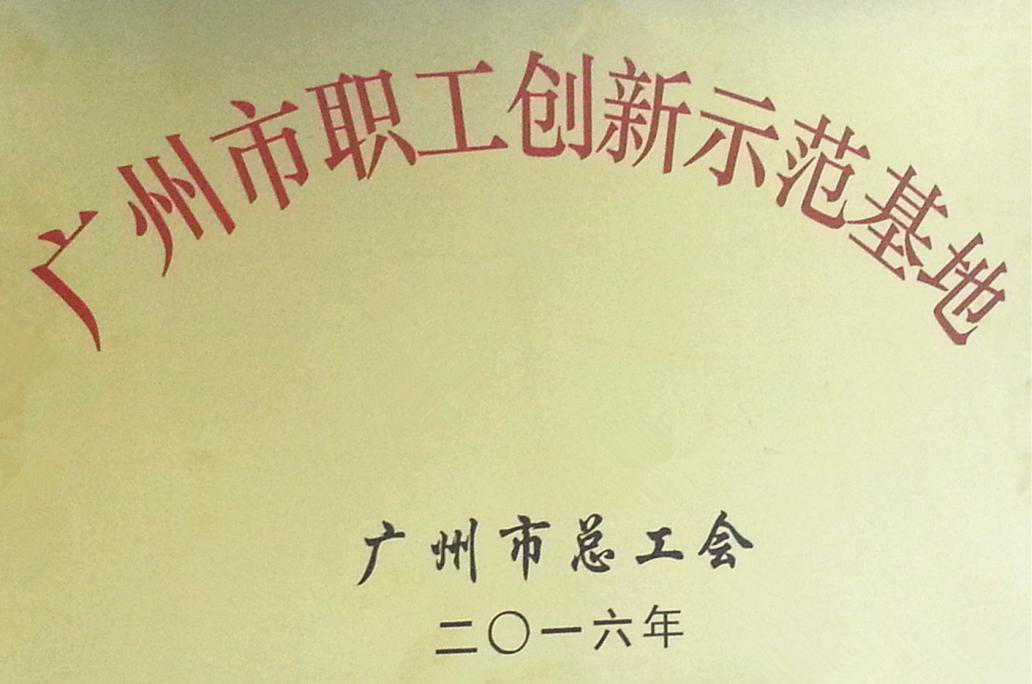 广州市职工创新示范基地
广州市总工会
二〇一六年